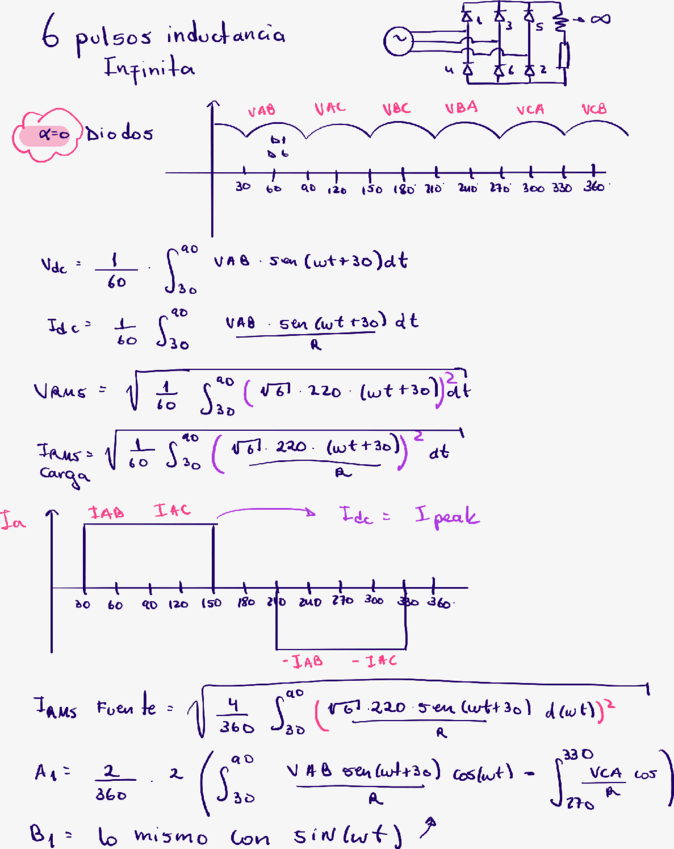 6 pulsos inductancia
Infinita
1 3 5 → ∞
~
4 6 2
α=0 Diodos
VAB VAC VBC VBA VCA VCB
D1
D6
30 60 90 120 150 180 210 240 270 300 330 360
Vdc = 1/60 · ∫₃₀⁹⁰ VAB · sen(wt+30)dt
Idc = 1/60 ∫₃₀⁹⁰ VAB · sen(wt+30)/R dt
VRMS = √(1/60 ∫₃₀⁹⁰ (√6 · 220 · (wt+30))² dt)
IRMS = √(1/60 ∫₃₀⁹⁰ (√6 · 220 · (wt+30)/R)² dt)
carga
Ia
IAB IAC → Idc = Ipeak
30 60 90 120 150 180 210 240 270 300 330 360
-IAB -IAC
IRMS Fuente = √(4/360 ∫₃₀⁹⁰ (√6 · 220 · sen(wt+30)/R d(wt))²)
A1 = 2/360 · 2 (∫₃₀⁹⁰ VAB sen(wt+30)/R cos(wt) - ∫₂₇₀³³⁰ VCA/R cos)
B1 = lo mismo con sin(wt) ↗